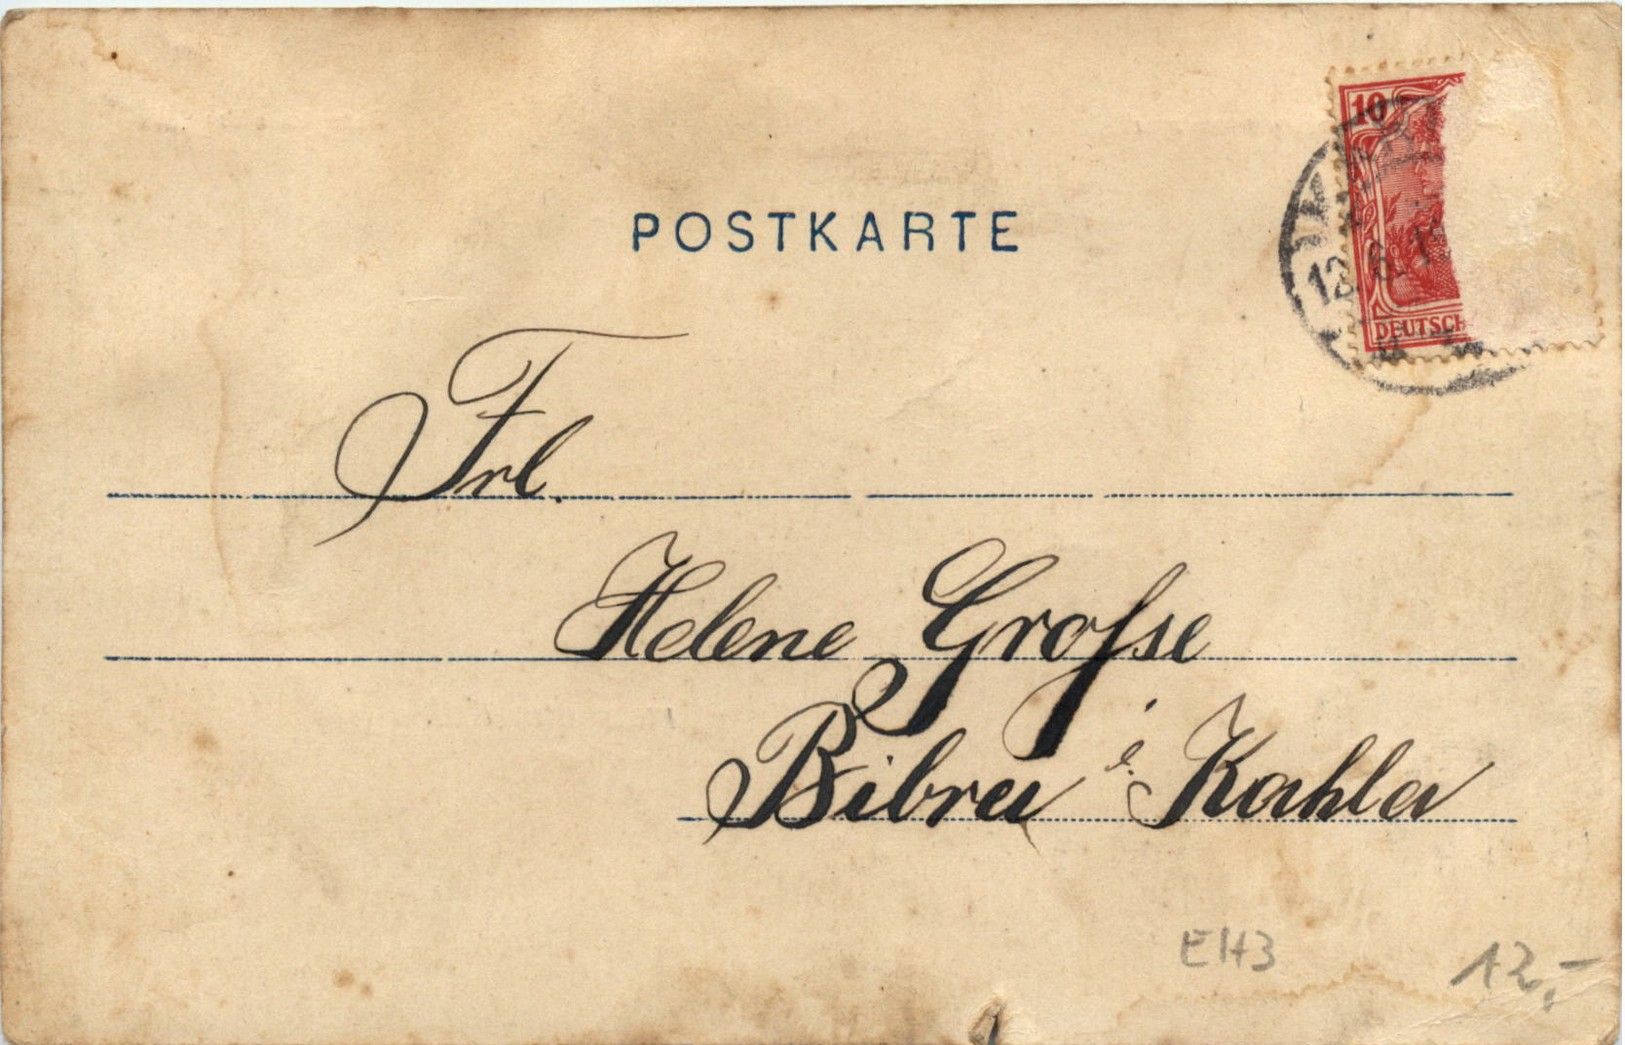 POSTKARTE
10
12.6.1
DEUTSCH
Frl.
Helene Grosse
Bibra b. Kahla
EH3
12,-